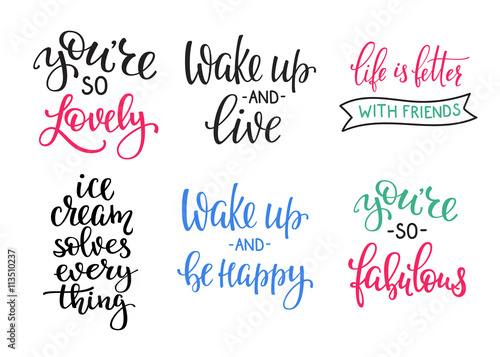 you're
so
Lovely
Wake up
-AND-
live
life is better
WITH FRIENDS
ice
cream
solves
every
thing
Wake up
-AND-
be Happy
you're
-so-
fabulous
Adobe Stock | #113510237